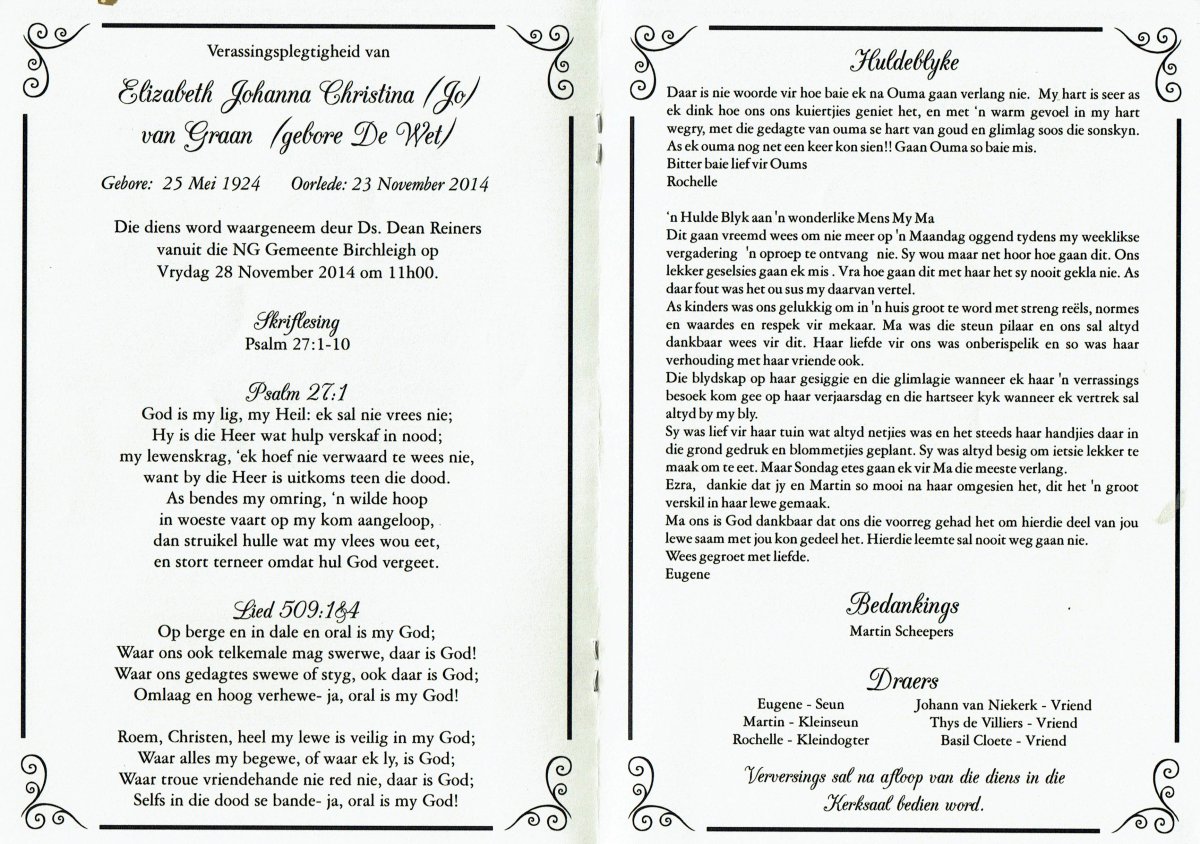 Verassingsplegtigheid van
Elizabeth Johanna Christina (Jo)
van Graan (gebore De Wet)
Gebore: 25 Mei 1924 Oorlede: 23 November 2014
Die diens word waargeneem deur Ds. Dean Reiners
vanuit die NG Gemeente Birchleigh op
Vrydag 28 November 2014 om 11h00.
Skriflesing
Psalm 27:1-10
Psalm 27:1
God is my lig, my Heil: ek sal nie vrees nie;
Hy is die Heer wat hulp verskaf in nood;
my lewenskrag, ‘ek hoef nie verwaard te wees nie,
want by die Heer is uitkoms teen die dood.
As bendes my omring, ‘n wilde hoop
in woeste vaart op my kom aangeloop,
dan struikel hulle wat my vlees wou eet,
en stort terneer omdat hul God vergeet.
Lied 509:1&4
Op berge en in dale en oral is my God;
Waar ons ook telkemale mag swerwe, daar is God!
Waar ons gedagtes swewe of styg, ook daar is God;
Omlaag en hoog verhewe- ja, oral is my God!
Roem, Christen, heel my lewe is veilig in my God;
Waar alles my begewe, of waar ek ly, is God;
Waar troue vriendehande nie red nie, daar is God;
Selfs in die dood se bande- ja, oral is my God!
Huldeblyke
Daar is nie woorde vir hoe baie ek na Ouma gaan verlang nie. My hart is seer as
ek dink hoe ons ons kuiertjies geniet het, en met ‘n warm gevoel in my hart
wegry, met die gedagte van ouma se hart van goud en glimlag soos die sonskyn.
As ek ouma nog net een keer kon sien!! Gaan Ouma so baie mis.
Bitter baie lief vir Oums
Rochelle
‘n Hulde Blyk aan 'n wonderlike Mens My Ma
Dit gaan vreemd wees om nie meer op 'n Maandag oggend tydens my weeklikse
vergadering 'n oproep te ontvang nie. Sy wou maar net hoor hoe gaan dit. Ons
lekker geselsies gaan ek mis . Vra hoe gaan dit met haar het sy nooit gekla nie. As
daar fout was het ou sus my daarvan vertel.
As kinders was ons gelukkig om in 'n huis groot te word met streng reëls, normes
en waardes en respek vir mekaar. Ma was die steun pilaar en ons sal altyd
dankbaar wees vir dit. Haar liefde vir ons was onberispelik en so was haar
verhouding met haar vriende ook.
Die blydskap op haar gesiggie en die glimlagie wanneer ek haar 'n verrassings
besoek kom gee op haar verjaarsdag en die hartseer kyk wanneer ek vertrek sal
altyd by my bly.
Sy was lief vir haar tuin wat altyd netjies was en het steeds haar handjies daar in
die grond gedruk en blommetjies geplant. Sy was altyd besig om ietsie lekker te
maak om te eet. Maar Sondag etes gaan ek vir Ma die meeste verlang.
Ezra, dankie dat jy en Martin so mooi na haar omgesien het, dit het 'n groot
verskil in haar lewe gemaak.
Ma ons is God dankbaar dat ons die voorreg gehad het om hierdie deel van jou
lewe saam met jou kon gedeel het. Hierdie leemte sal nooit weg gaan nie.
Wees gegroet met liefde.
Eugene
Bedankings
Martin Scheepers
Draers
Eugene - Seun Johann van Niekerk - Vriend
Martin - Kleinseun Thys de Villiers - Vriend
Rochelle - Kleindogter Basil Cloete - Vriend
Verversings sal na afloop van die diens in die
Kerksaal bedien word.